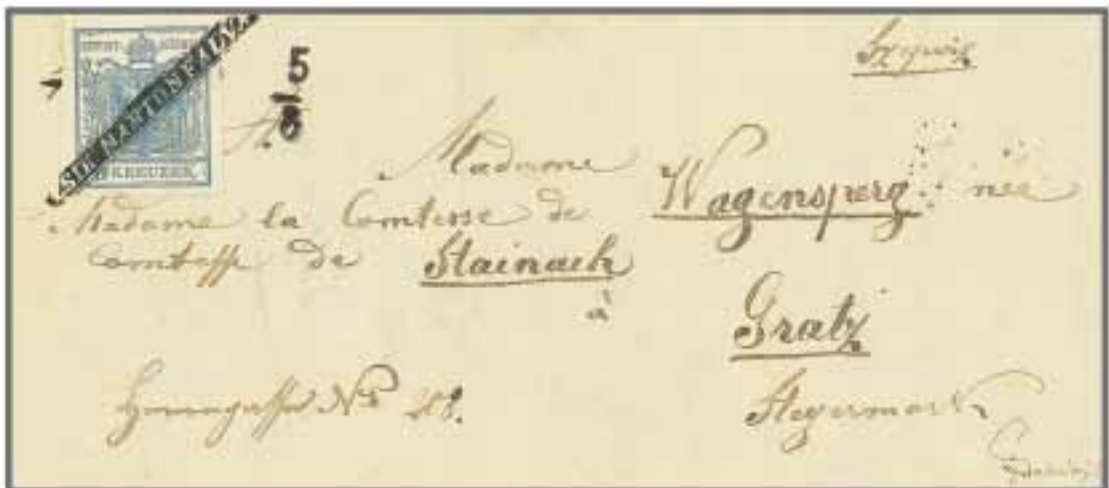 KREUZER
S.NANTONFA152.
5
8
Madame
Madame la Comtesse de Wagensperg née
Comtesse de Stainach
à
Gratz
Herrengasse No
Steyermark